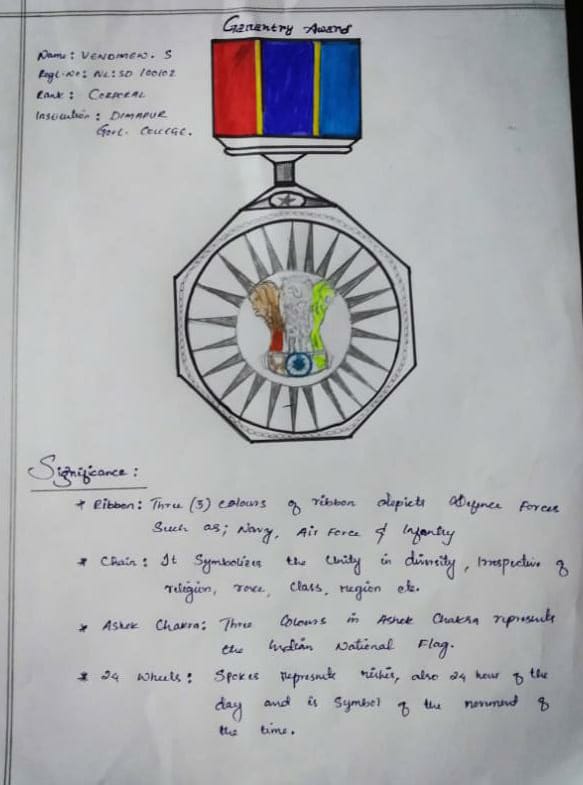 Gallantry Award
Name: VENDIMEN. S
Regl.No: NL:SD 100102
Rank: CORPORAL
Institution: DIMAPUR
Govt. COLLEGE.
Significance:
* Ribbon: Three (3) colours of ribbon depicts Defence Forces
Such as; Navy, Air Force & Infantry
* Chain: It Symbolizes the Unity in diversity, Irrespective of
religion, race, Class, region etc.
* Ashok Chakra: Three Colours in Ashok Chakra represents
the Indian National Flag.
* 24 Wheels: Spokes represents rishis, also 24 hour of the
day and is Symbol of the movment of
the time.